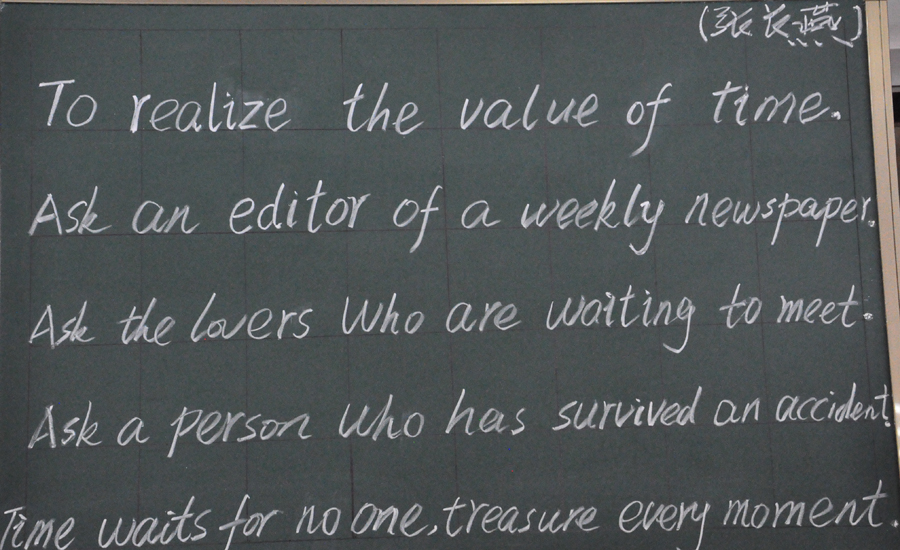 (张长燕)
To realize the value of time.
Ask an editor of a weekly newspaper.
Ask the lovers who are waiting to meet.
Ask a person who has survived an accident!
Time waits for no one, treasure every moment.